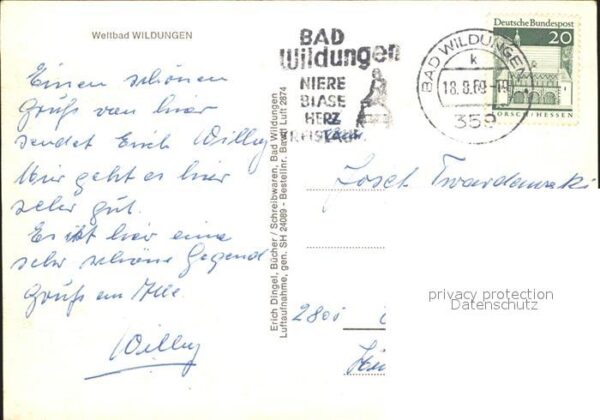 Weltbad WILDUNGEN
Einen schönen
Gruß von hier
sendet Euch Willy
Mir geht es hier
sehr gut.
Es ist hier eine
sehr schöne Gegend
Gruß an Alle.
Willy
Erich Dingel, Bücher / Schreibwaren, Bad Wildungen
Luftaufnahme, gen. SH 24089 - Bestellnr. Bawi Luft 2874
BAD
Wildungen
NIERE
BLASE
HERZ
KREISLAUF
BAD WILDUNGEN
k
18.8.69
359
Deutsche Bundespost
20
LORSCH/HESSEN
Josef Twardawski
privacy protection
Datenschutz
2801